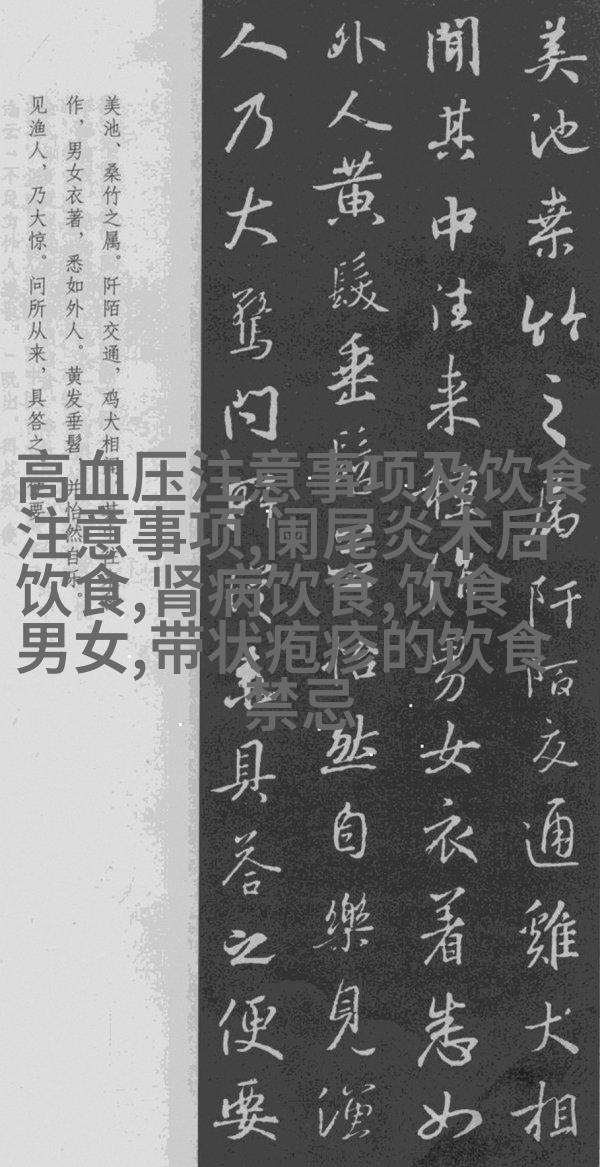 美池桒竹之属阡陌交通雞犬相
聞其中往来種作男女衣着悉如
外人黄髮垂髫並怡然自樂見漁
人乃大驚問所從来具答之便要
美池、桑竹之属。阡陌交通,鸡犬相
作,男女衣著,悉如外人。黄发垂髫,并怡然自乐。
见渔人,乃大惊。问所从来,具答之。便要
高血压注意事项及饮食
注意事项,阑尾炎术后
饮食,肾病饮食,饮食
男女,带状疱疹的饮食
禁忌